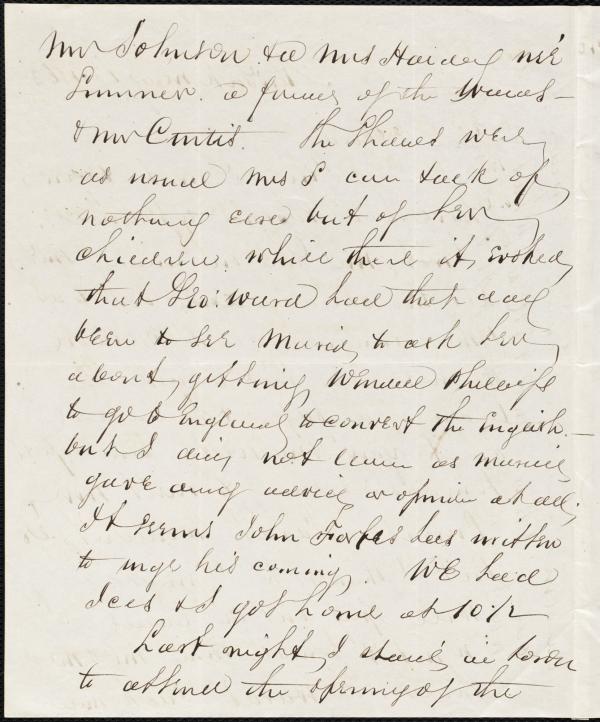 Mr Johnson & a Mrs Harding née
Sumner. a friend of the Wards –
& Mr Curtis. The Shaws were
as usual Mrs S can talk of
nothing else but of her
children. While there it evoked,
that Geo: Ward had that day
been to see Maria, to ask her
about, getting, Wendell Phillips
to go to England to convert the English. –
but I did not learn as Maria
gave any advice or opinion at all;
It seems John Forbes has written
to urge his coming. We had
Ices & I got home at 10 1/2
Last night, I staid in town
to attend the opening of the